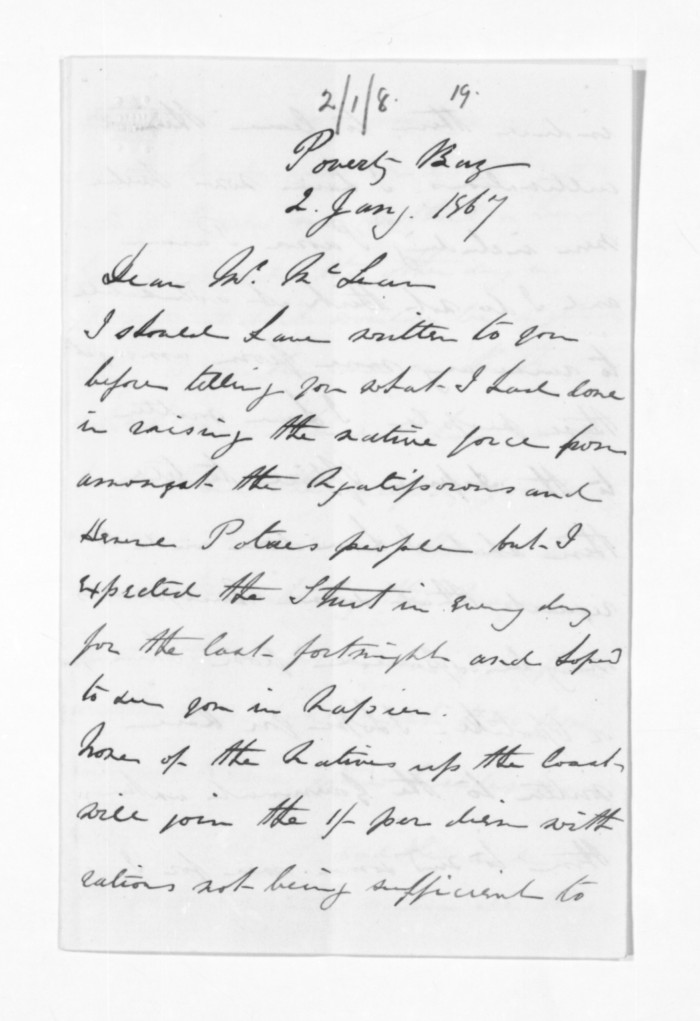 2/1/8. 19.
Poverty Bay
2. Jany. 1867
Dear Mr. McLean
I should have written to you
before telling you what I had done
in raising the native force from
amongst the Ngatiporous and
Henare Potaes people but I
expected the Sturt in every day
for the last fortnight and hoped
to see you in Napier.
None of the Natives up the Coast
will join the 1/- per diem with
rations not being sufficient to